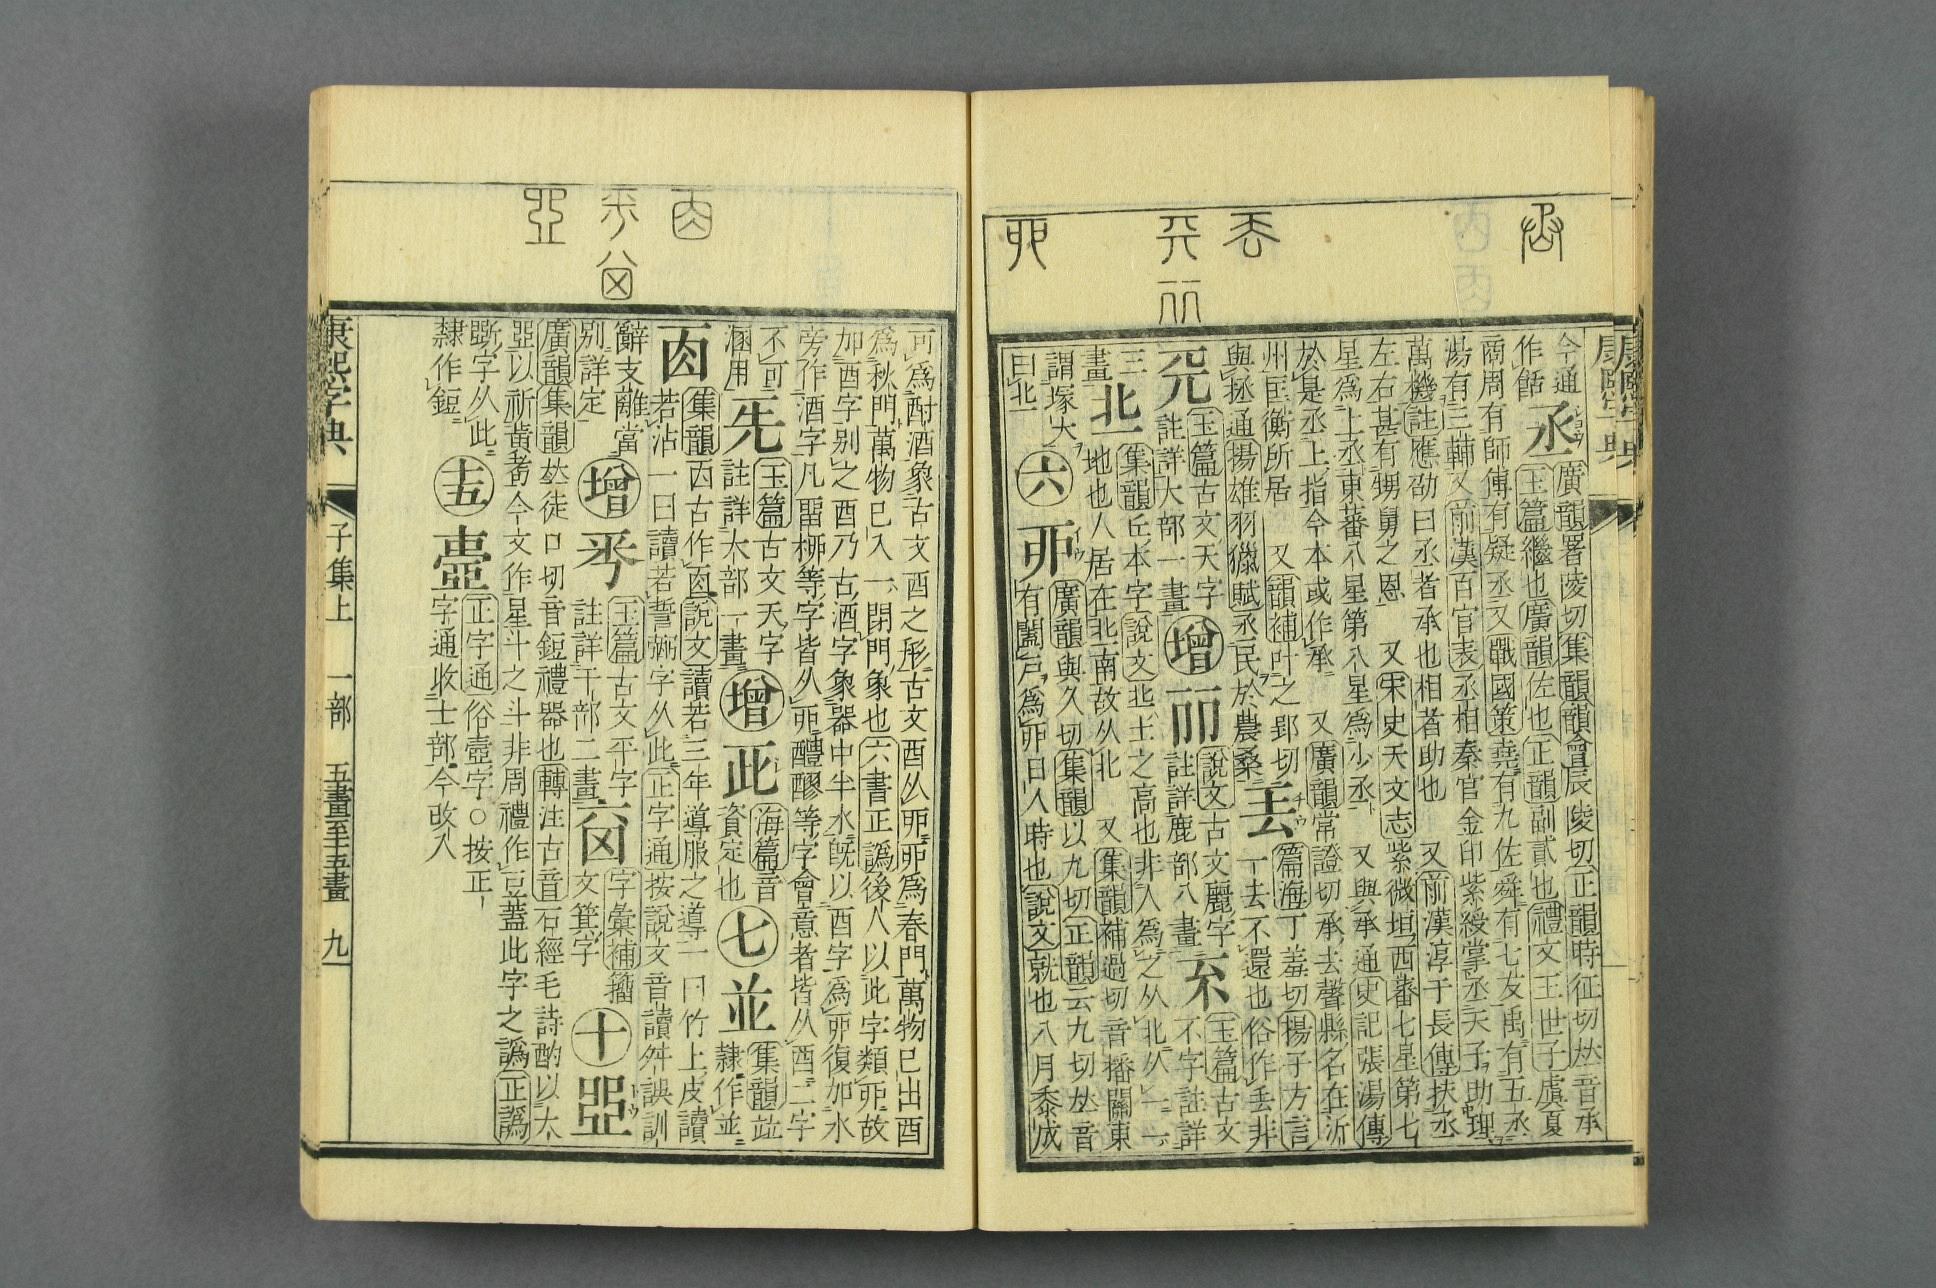 今通
作餂
丞
廣韻署陵切集韻韻會辰陵切正韻時征切𠀤音承
玉篇繼也廣韻佐也正韻副貳也禮文王世子虞夏
商周有師傅有疑丞又戰國策堯有九佐舜有七友禹有五丞
湯有三輔又前漢百官表丞相秦官金印紫綬掌丞天子助理
萬機註應劭曰丞者承也相者助也 又前漢淳于長傳扶丞
左右甚有甥舅之恩 又宋史天文志紫微垣西蕃七星第七
星爲上丞東蕃八星第八星爲少丞 又與承通史記張湯傳
於是丞上指今本或作承 又廣韻常證切承去聲縣名在沂
州匡衡所居 又韻補叶之郢切
與拯通揚雄羽獵賦丞民於農桑
丢
篇海丁羞切揚子方言
一去不還也俗作丟非
兲
玉篇古文天字
註詳大部一畫
增
丽
說文古文麗字
註詳鹿部八畫
𠀚
玉篇古文
不字註詳
三
畫
北
集韻丘本字說文北土之高也非人爲之从北从一一
地也人居在北南故从北 又集韻補過切音播關東
謂塚大
曰北
六
丣
廣韻與久切集韻以九切正韻云九切𠀤音
有闔戸爲丣日人時也說文就也八月黍成
可爲酎酒象古文酉之形古文酉从丣丣爲春門萬物已出酉
爲秋門萬物已入一閉門象也六書正譌後人以此字類丣故
加酉字别之酉乃古酒字象器中半水旣以酉字爲丣復加水
旁作酒字凡畱桺等字皆从丣醴醪等字會意者皆从酉二字
不可
溷用
兂
玉篇古文天字
註詳大部一畫
增
此
海篇音
資定也
七
並
集韻竝
隸作並
㐁
集韻㐁古作𠀬說文讀若三年導服之導一曰竹上皮讀
若沾一曰讀若誓弼字从此正字通按說文音讀舛誤訓
辭支離當
别詳定
增
𠀾
玉篇古文平字
註詳干部二畫
𠀠
字彙補籀
文箕字
十
㖶
廣韻集韻𠀤徒口切音鋀禮器也轉注古音石經毛詩酌以大
㖶以祈黃耇今文作星斗之斗非周禮作豆蓋此字之譌正譌
斲字从此
隸作鋀
十五
壼
正字通俗壼字○按正
字通收士部今改入
康熙字典
子集上
一部
五畫至十五畫
九